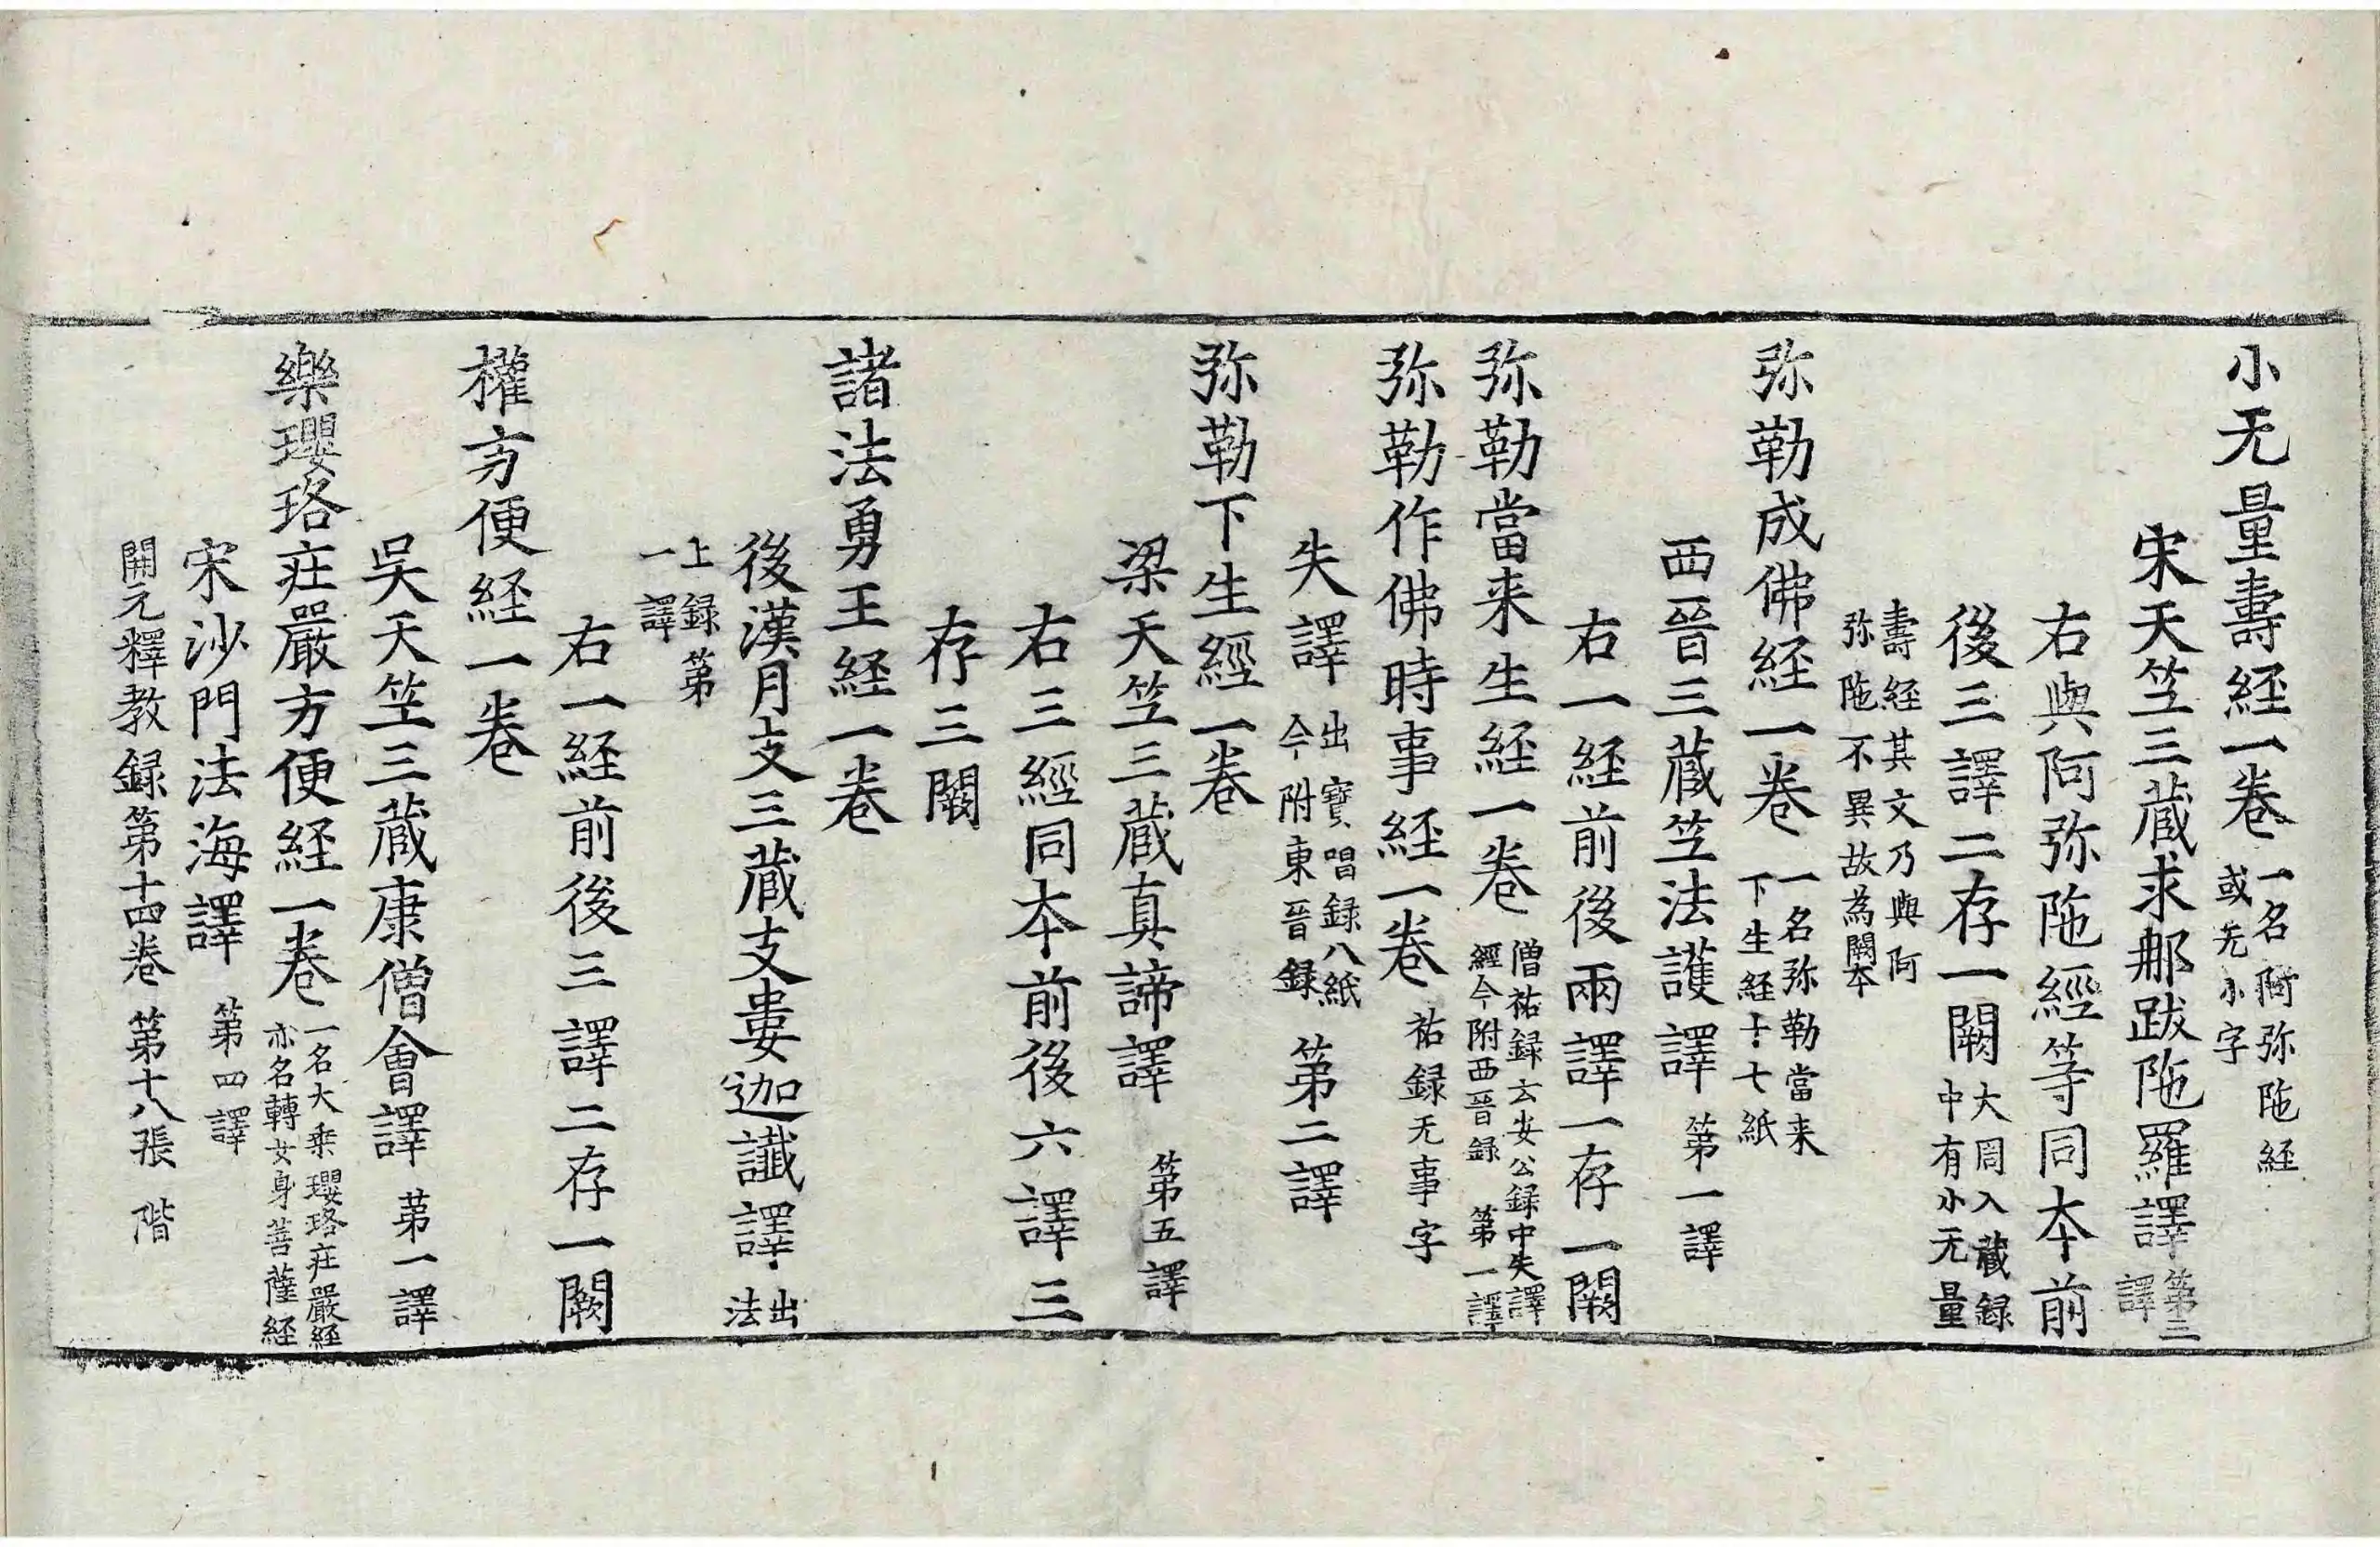 小无量壽経一卷一名阿弥陁経或无小字
宋天竺三蔵求那跋陁羅譯第三譯
右與阿弥陁經等同夲前
後三譯二存一闕大周入蔵録中有小无量
壽経其文乃與阿弥陁不異故為闕夲
弥勒成佛経一卷一名弥勒當来下生経十七紙
西晉三蔵竺法護譯第一譯
右一経前後兩譯一存一闕
弥勒當来生経一卷僧祐録云安公録中失譯經今附西晉録第一譯
弥勒作佛時事経一卷祐録无事字
失譯出寶唱録八紙今附東晉録第二譯
弥勒下生經一卷
梁天竺三蔵真諦譯第五譯
右三經同夲前後六譯三
存三闕
諸法勇王経一卷
後漢月支三蔵支婁迦讖譯出法
上録第一譯
右一経前後三譯二存一闕
權方便経一卷
吳天竺三蔵康僧會譯第一譯
樂瓔珞莊嚴方便経一卷一名大乘瓔珞莊嚴経亦名轉女身菩薩経
宋沙門法海譯第四譯
開元釋教録第十四卷 第十八張 階